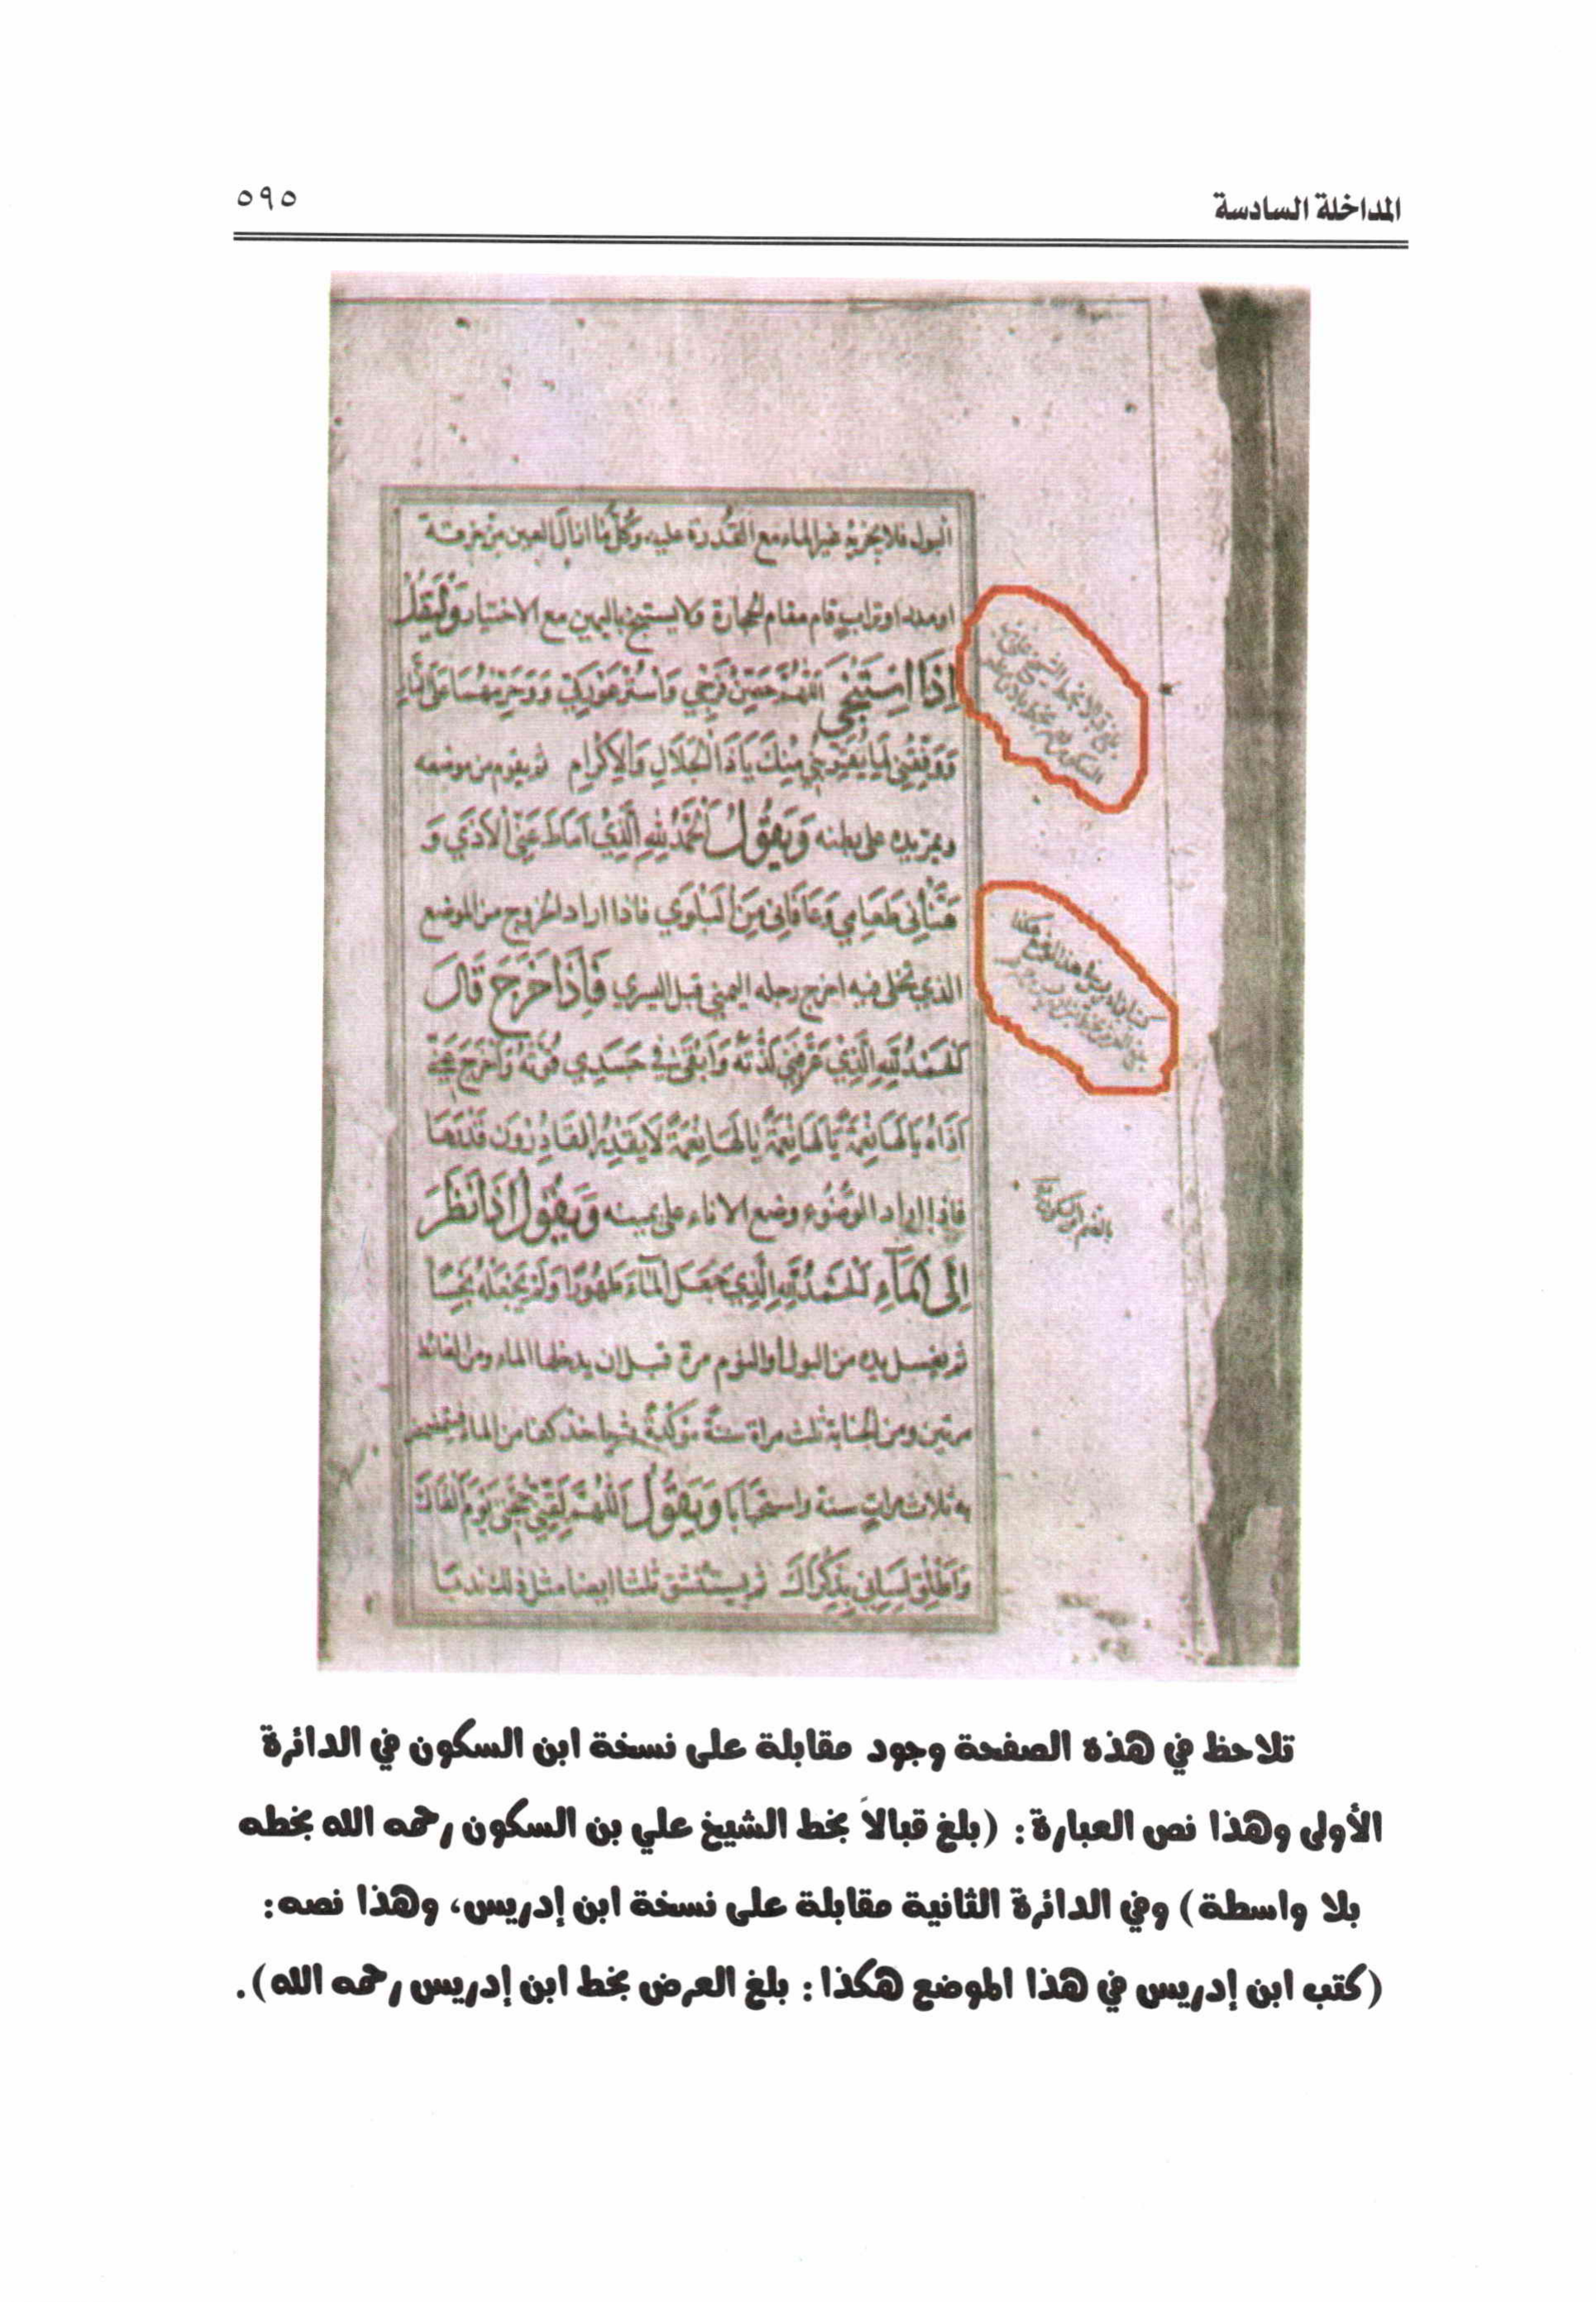 المداخلة السادسة
٥٩٥
البول فلا يجزيه غير الماء مع القدرة عليه، وكُلّ ما ازال العين من خرقة
او مدر او تراب قام مقام الحجارة ولا يستنجي باليمين مع الاختيار وَلْيَقُلْ
اِذَا اسْتَنْجى اَللّهُمَّ حَصِّنْ فَرْجِي وَاسْتُرْ عَوْرَتِي وَحَرِّمْهُمَا عَلَى النَّارِ
وَوَفِّقْنِي لِمَا يُقَرِّبُنِي مِنْكَ يَا ذَا الْجَلَالِ وَالْاِكْرامِ ثم يقوم من موضعه
ويمر يده على بطنه وَيَقُولُ اَلْحَمْدُ لِلّهِ الَّذِي اَمَاطَ عَنِّي الْاَذَى وَ
هَنَّأَنِي طَعَامِي وَعَافَانِي مِنَ الْبَلْوَى فاذا اراد الخروج من الموضع
الذي تخلى فيه اخرج رجله اليمنى قبل اليسرى فَاِذَا خَرَجَ قَالَ
اَلْحَمْدُ لِلّهِ الَّذِي عَرَّفَنِي لَذَّتَهُ وَاَبْقَى فِي جَسَدِي قُوَّتَهُ وَاَخْرَجَ عَنِّي
اَذَاهُ يَا لَهَا نِعْمَةً يَا لَهَا نِعْمَةً يَا لَهَا نِعْمَةً لَا يَقْدِرُ الْقَادِرُونَ قَدْرَهَا
فاذا اراد الوُضُوء وضع الاناء على يمينه وَيَقُولُ اِذَا نَظَرَ
اِلَى الْمَاءِ اَلْحَمْدُ لِلّهِ الَّذِي جَعَلَ الْمَاءَ طَهُورًا وَلَمْ يَجْعَلْهُ نَجِسًا
ثم يغسل يده من البول أو النوم مرة قبل ان يدخلها الماء ومن الغائط
مرتين ومن الجنابة ثلث مراة سنة مؤكدة ثم ياخذ كفا من الماء فيتمضمض
به ثلاث مرات سنة واستحبابا وَيَقُولُ اَللّهُمَّ لَقِّنِّي حُجَّتِي يَوْمَ اَلْقَاكَ
وَاَطْلِقْ لِسَانِي بِذِكْرَاكَ ثم يستنشق ثلثا ايضا مثل ذلك ندبا
بلغ قبالا بخط الشيخ علي بن
السكون
كتب ابن ادريس في هذا الموضع هكذا
بلغ العرض بخط ابن ادريس
تلاحظ في هذه الصفحة وجود مقابلة على نسخة ابن السكون في الدائرة
الأولى وهذا نص العبارة: (بلغ قبالاً بخط الشيخ علي بن السكون رحمه الله بخطه
بلا واسطة) وفي الدائرة الثانية مقابلة على نسخة ابن إدريس، وهذا نصه:
(كتب ابن إدريس في هذا الموضع هكذا: بلغ العرض بخط ابن إدريس رحمه الله).